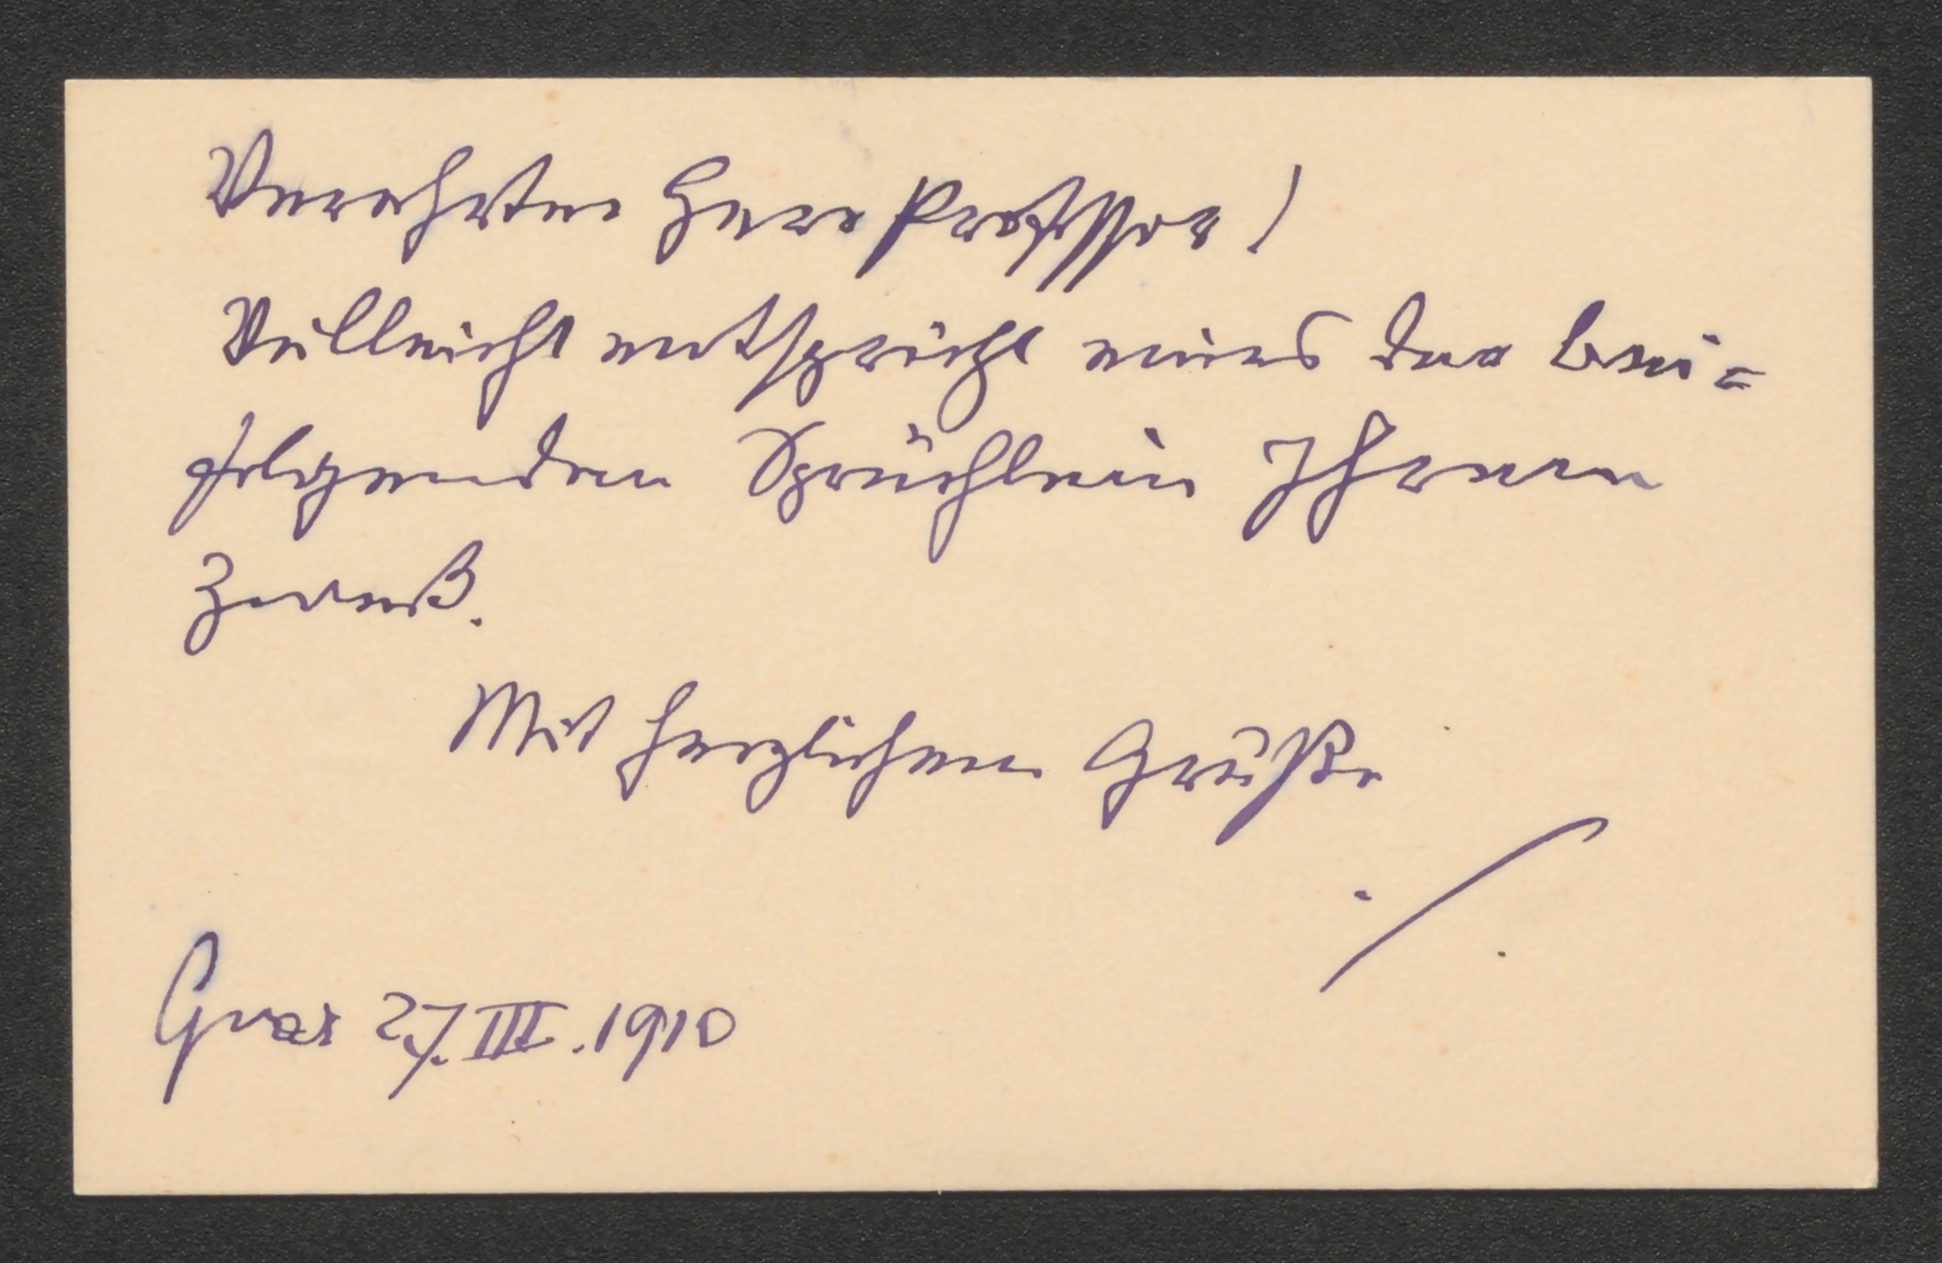 Verehrter Herr Professor!
Vielleicht entspricht eines der bei=
folgenden Sprüchlein Ihrem
Zweck.
Mit herzlichem Gruße
Graz 27. III. 1910